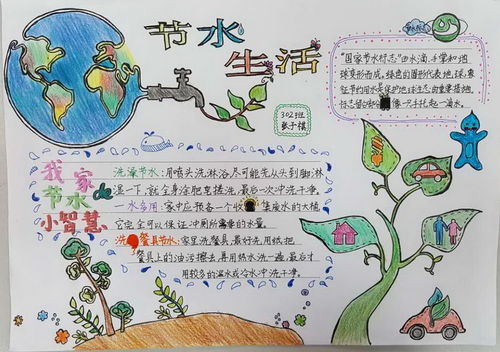 节水
生活
302班
张子棋
"国家节水标志"由水滴、手掌和地
球变形而成。绿色的圆形代表地球,象
征节约用水是保护地球生态的重要措施。
标志留白部分像一只手托起一滴水。
我家
节水
小智慧
洗澡节水:用喷头洗淋浴尽可能先从头到脚淋
湿一下,就全身涂肥皂搓洗,最后一次冲洗干净。
一水多用:家中应预备一个收集废水的大桶,
它完全可以保证冲厕所需要的水量。
洗餐具节水:家里洗餐具,最好先用纸把
餐具上的油污擦去,再用热水洗一遍,最后才
用较多的温水或冷水冲洗干净。